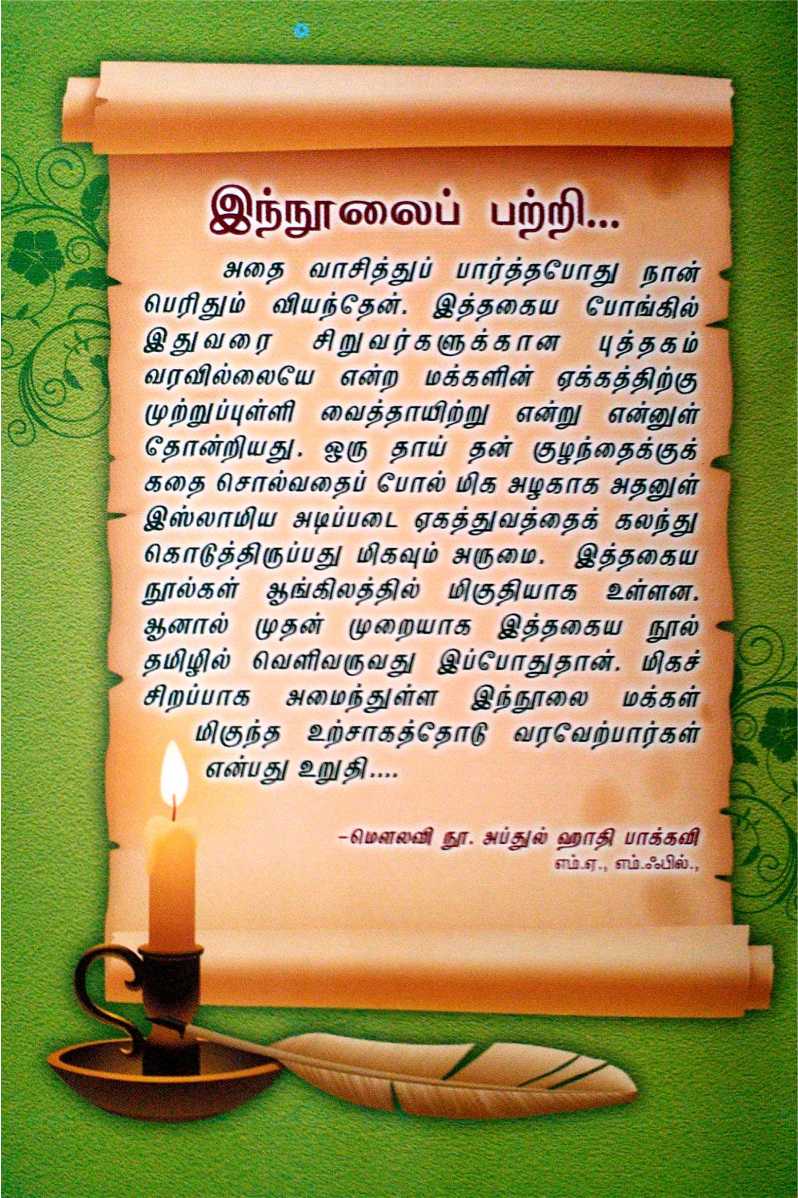 இந்நூலைப் பற்றி...
அதை வாசித்துப் பார்த்தபோது நான்
பெரிதும் வியந்தேன். இத்தகைய போங்கில்
இதுவரை சிறுவர்களுக்கான புத்தகம்
வரவில்லையே என்ற மக்களின் ஏக்கத்திற்கு
முற்றுப்புள்ளி வைத்தாயிற்று என்று என்னுள்
தோன்றியது. ஒரு தாய் தன் குழந்தைக்குக்
கதை சொல்வதைப் போல் மிக அழகாக அதனுள்
இஸ்லாமிய அடிப்படை ஏகத்துவத்தைக் கலந்து
கொடுத்திருப்பது மிகவும் அருமை. இத்தகைய
நூல்கள் ஆங்கிலத்தில் மிகுதியாக உள்ளன.
ஆனால் முதன் முறையாக இத்தகைய நூல்
தமிழில் வெளிவருவது இப்போதுதான். மிகச்
சிறப்பாக அமைந்துள்ள இந்நூலை மக்கள்
மிகுந்த உற்சாகத்தோடு வரவேற்பார்கள்
என்பது உறுதி....
-மௌலவி நூ. அப்துல் ஹாதி பாக்கவி
எம்.ஏ., எம்.ஃபில்.,